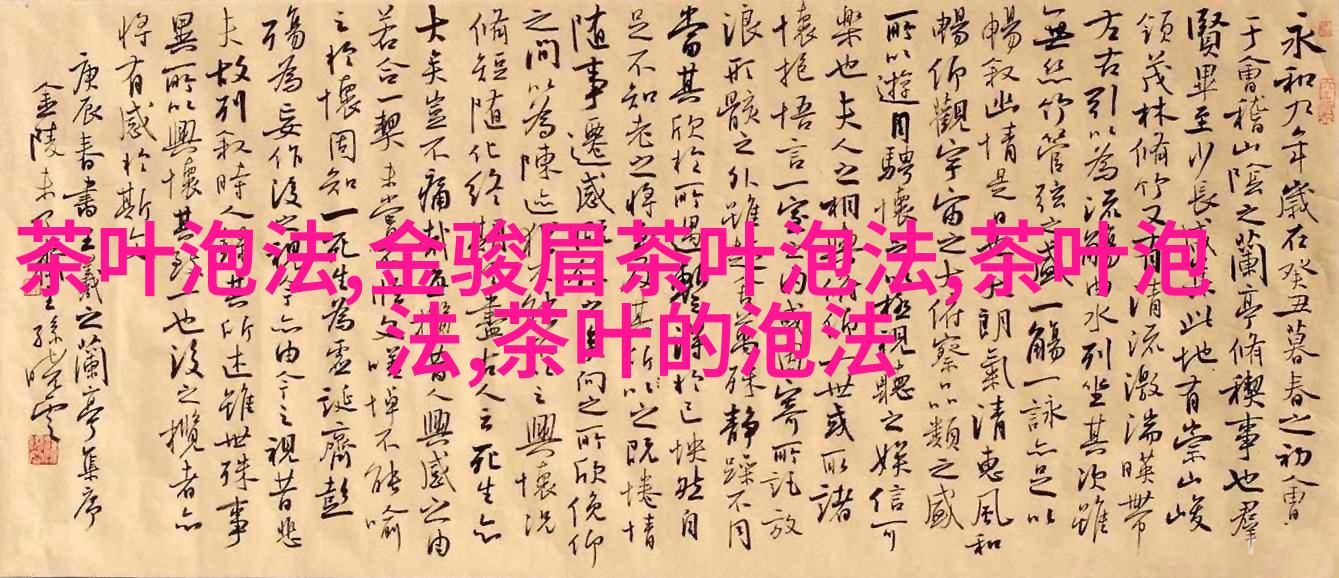 茶叶泡法,金骏眉茶叶泡法,茶叶泡
法,茶叶的泡法
永和九年歲在癸丑暮春之初會
于會稽山陰之蘭亭脩禊事也羣
賢畢至少長咸此地有崇山峻
領茂林脩竹又有清流激湍暎帶
左右引以為流觴曲水列坐其次雖
無絲竹管弦之盛一觴一詠亦足以
暢敘幽情是日也天朗氣清惠風和
暢仰觀宇宙之大俯察品類之盛
所以遊目騁懷足以極視聽之娛信可
樂也夫人之相與俯仰一世或取諸
懷抱悟言一室之內或因寄所託放
浪形骸之外雖舍萬殊靜躁不同
當其欣於所遇暫得於己怏然自
足不知老之將及其所之既惓情
隨事遷感向之所欣俛仰
之間以為陳迹猶之興懷況
脩短隨化終期盡古人云死生亦
大矣豈不痛哉每攬昔人興感之由
若合一契未嘗不臨文嗟悼不能喻
之於懷固知一死生為虛誕齊彭
殤為妄作後之視今亦由今之視昔悲
夫故列敘時人錄其所述雖世殊事
異所以興懷其致一也後之攬者亦
將有感於斯文
庚辰春書王羲之蘭亭集序
金陵孫曉雲